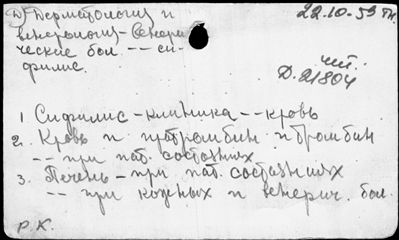 Д) Дерматология и
венерология - Венери-
ческие бол -- си-
филис.
22.10-59 тг.
чит.
Д-21804
1 Сифилис - клиника -- кровь
2. Кровь и протромбин и тромбин
-- при пат. состояниях
3. Печень - при пат. состояниях
-- при кожных и венерич. бол.
Р.К.